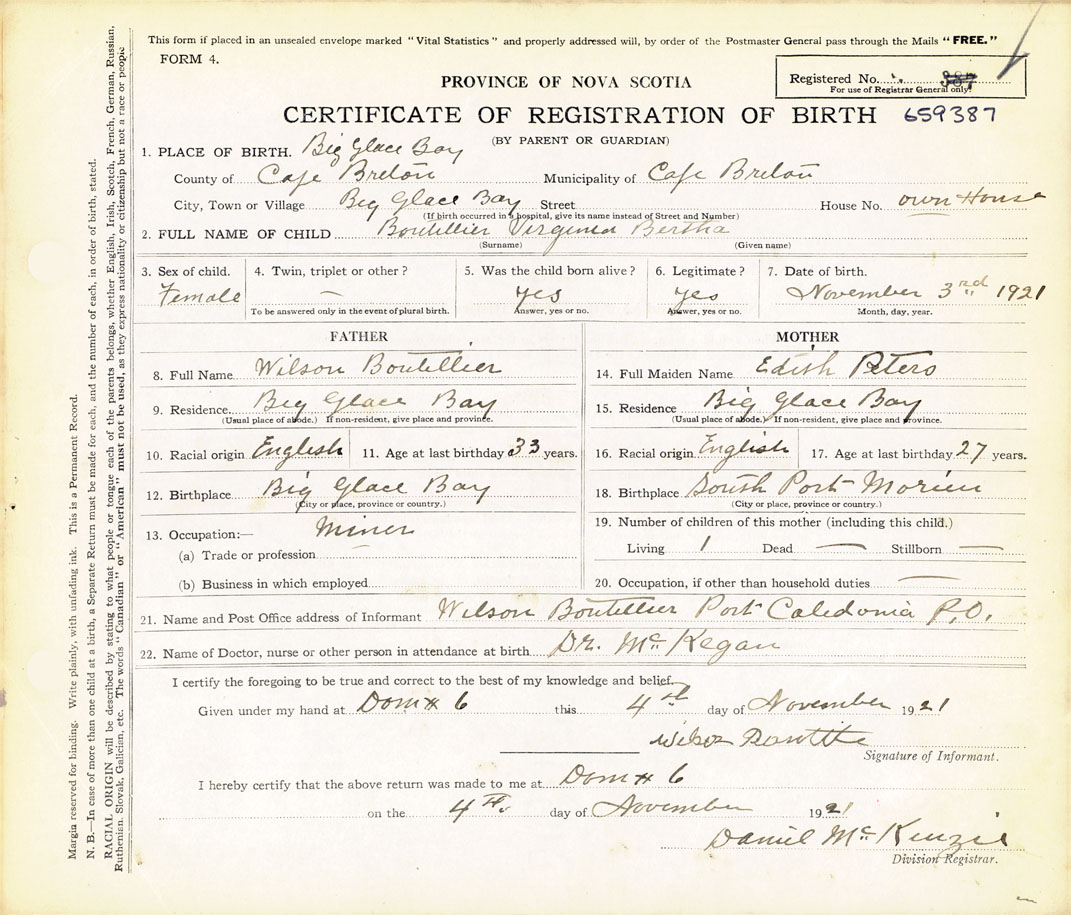 This form if placed in an unsealed envelope marked "Vital Statistics" and properly addressed will, by order of the Postmaster General pass through the Mails "FREE."
FORM 4.
PROVINCE OF NOVA SCOTIA
Registered No. 387
For use of Registrar General only.
CERTIFICATE OF REGISTRATION OF BIRTH 659387
(BY PARENT OR GUARDIAN)
1. PLACE OF BIRTH. Big Glace Bay
County of Cape Breton Municipality of Cape Breton
City, Town or Village Big Glace Bay Street House No. own House
(If birth occurred in a hospital, give its name instead of Street and Number)
2. FULL NAME OF CHILD Boutillier Virginia Bertha
(Surname) (Given name)
3. Sex of child. 4. Twin, triplet or other? 5. Was the child born alive? 6. Legitimate? 7. Date of birth.
Female — yes yes November 3rd 1921
To be answered only in the event of plural birth. Answer, yes or no. Answer, yes or no. Month, day, year.
FATHER
8. Full Name Wilson Boutillier
9. Residence Big Glace Bay
(Usual place of abode.) If non-resident, give place and province.
10. Racial origin English 11. Age at last birthday 33 years.
12. Birthplace Big Glace Bay
(City or place, province or country.)
13. Occupation:— Miner
(a) Trade or profession
(b) Business in which employed
MOTHER
14. Full Maiden Name Edith Peters
15. Residence Big Glace Bay
(Usual place of abode.) If non-resident, give place and province.
16. Racial origin English 17. Age at last birthday 27 years.
18. Birthplace South Port Morien
(City or place, province or country.)
19. Number of children of this mother (including this child.)
Living 1 Dead — Stillborn —
20. Occupation, if other than household duties —
21. Name and Post Office address of Informant Wilson Boutillier Port Caledonia P.O.
22. Name of Doctor, nurse or other person in attendance at birth Dr. McKegan
I certify the foregoing to be true and correct to the best of my knowledge and belief.
Given under my hand at Dom # 6 this 4th day of November 1921
Signature of Informant.
I hereby certify that the above return was made to me at Dom # 6
on the 4th day of November 1921
Daniel McKenzie
Division Registrar.
Margin reserved for binding. Write plainly, with unfading ink. This is a Permanent Record.
N. B.—In case of more than one child at a birth, a Separate Return must be made for each, and the number of each, in order of birth, stated.
RACIAL ORIGIN will be described by stating to what people or tongue each of the parents belongs, whether English, Irish, Scotch, French, German, Russian,
Ruthenian, Slovak, Galician, etc. The words "Canadian" or "American" must not be used, as they express nationality or citizenship but not a race or people